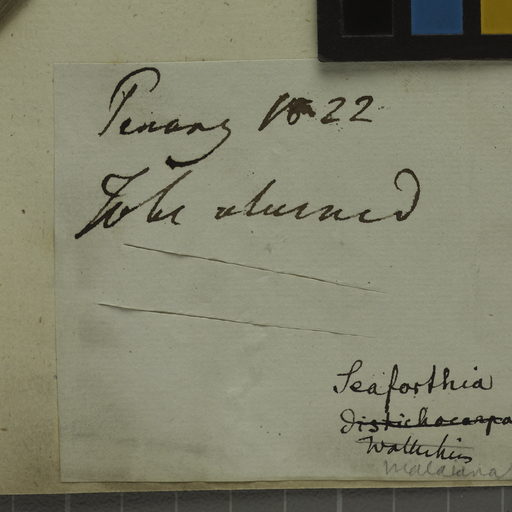 Penang 1822
To be returned
Seaforthia
distichocarpa
malaiana